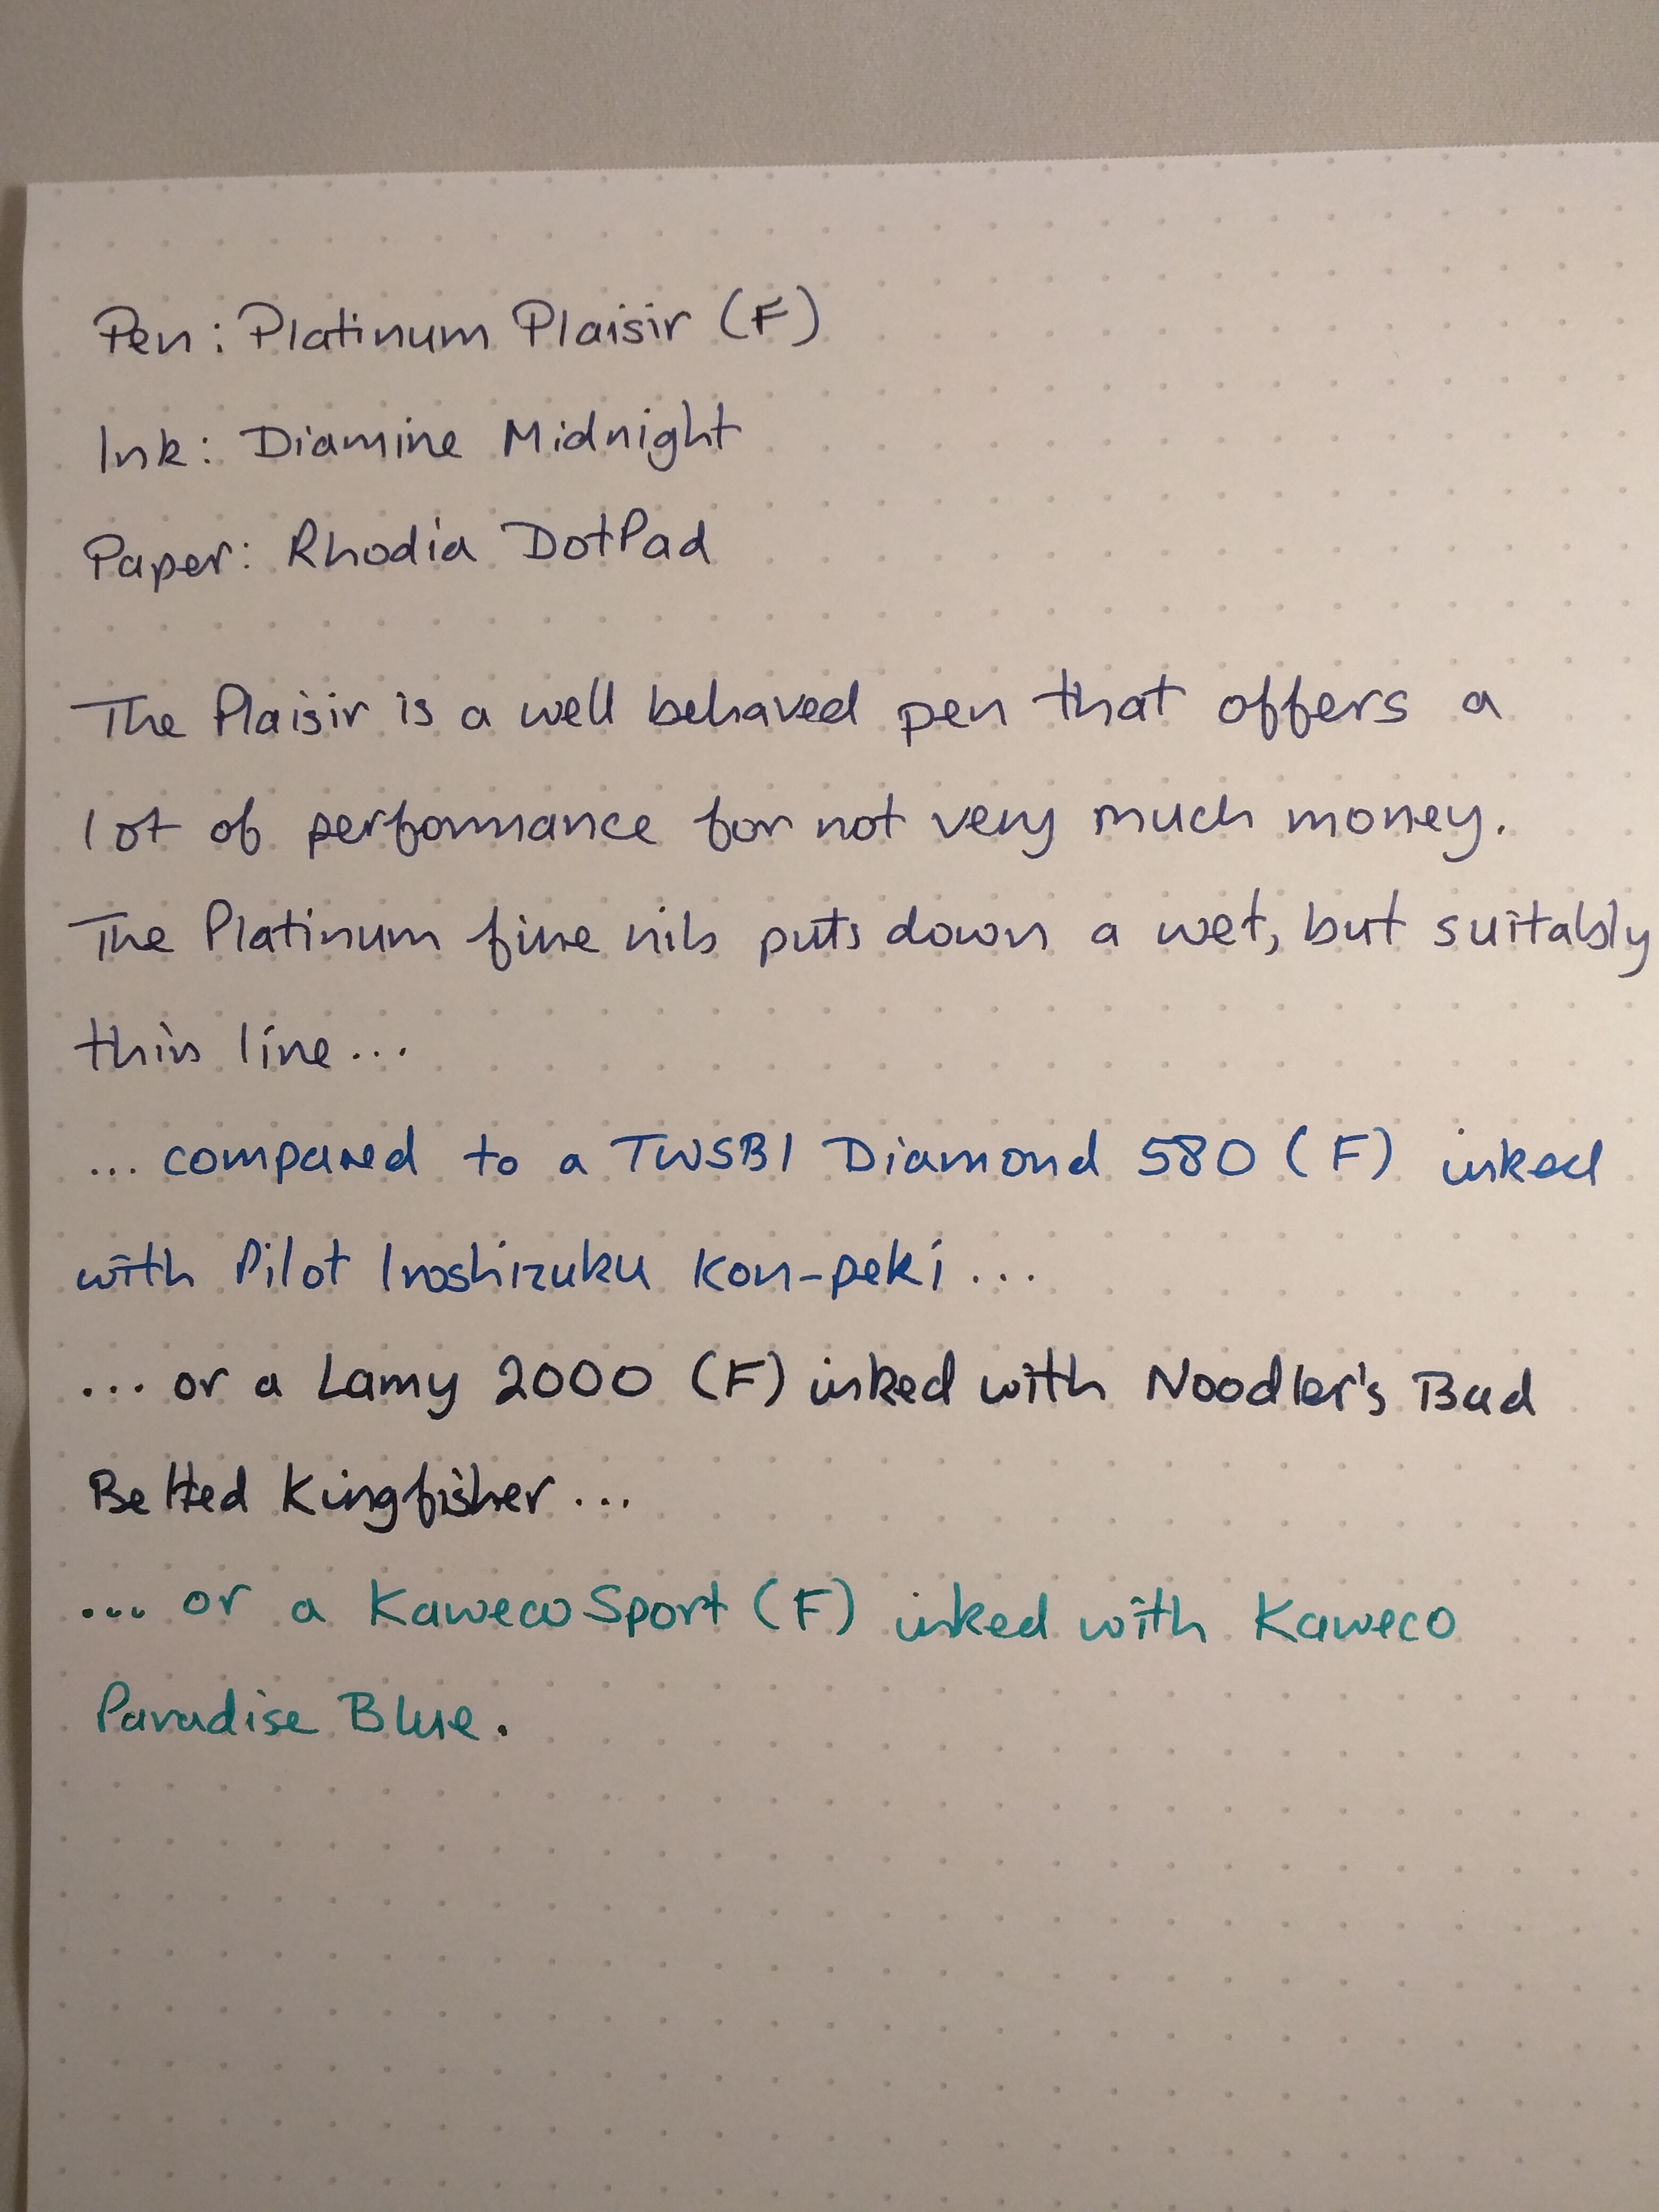 Pen: Platinum Plaisir (F)
Ink: Diamine Midnight
Paper: Rhodia DotPad
The Plaisir is a well behaved pen that offers a
lot of performance for not very much money.
The Platinum fine nib puts down a wet, but suitably
thin line...
... compared to a TWSBI Diamond 580 (F) inked
with Pilot Iroshizuku Kon-peki...
... or a Lamy 2000 (F) inked with Noodler's Bad
Belted Kingfisher...
... or a Kaweco Sport (F) inked with Kaweco
Paradise Blue.